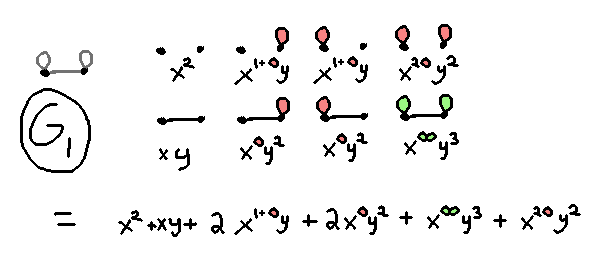 x² x^{1+○}y x^{1+○}y x^{2○}y²
G₁ xy x^{○}y² x^{○}y² x^{∞}y³
= x² + xy + 2 x^{1+○}y + 2x^{○}y² + x^{∞}y³ + x^{2○}y²